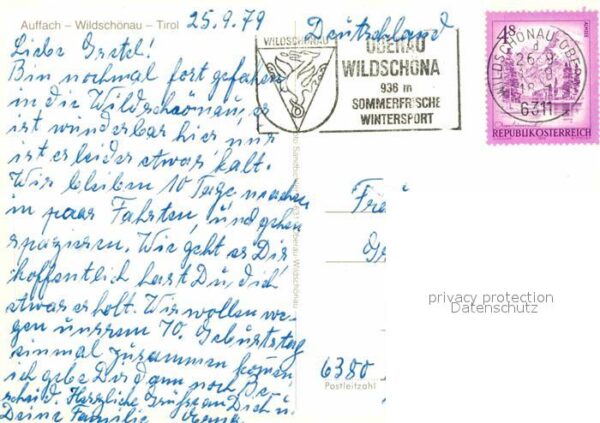 Auffach – Wildschönau – Tirol
25.9.79
Deutschland
Liebe Gretel!
Bin nochmal fort gefahren
in die Wildschönau, es
ist wunderbar hier nur
ist es leider etwas kalt.
Wir bleiben 10 Tage, machen
ein paar Fahrten, und gehen
spazieren. Wie geht es Dir
hoffentlich hast Du, dich
etwas erholt. Wir wollen we-
gen unserem 70. Geburtstag
einmal zusammen kommen
ich gebe Dir dann noch Be-
scheid. Herzliche Grüsse an Dich u.
Deine Familie
WILDSCHÖNAU
OBERAU
WILDSCHÖNA
936 m
SOMMERFRISCHE
WINTERSPORT
4S
WILDSCHÖNAU-OBE
26.9.
6311
REPUBLIK ÖSTERREICH
6380
Postleitzahl
privacy protection
Datenschutz